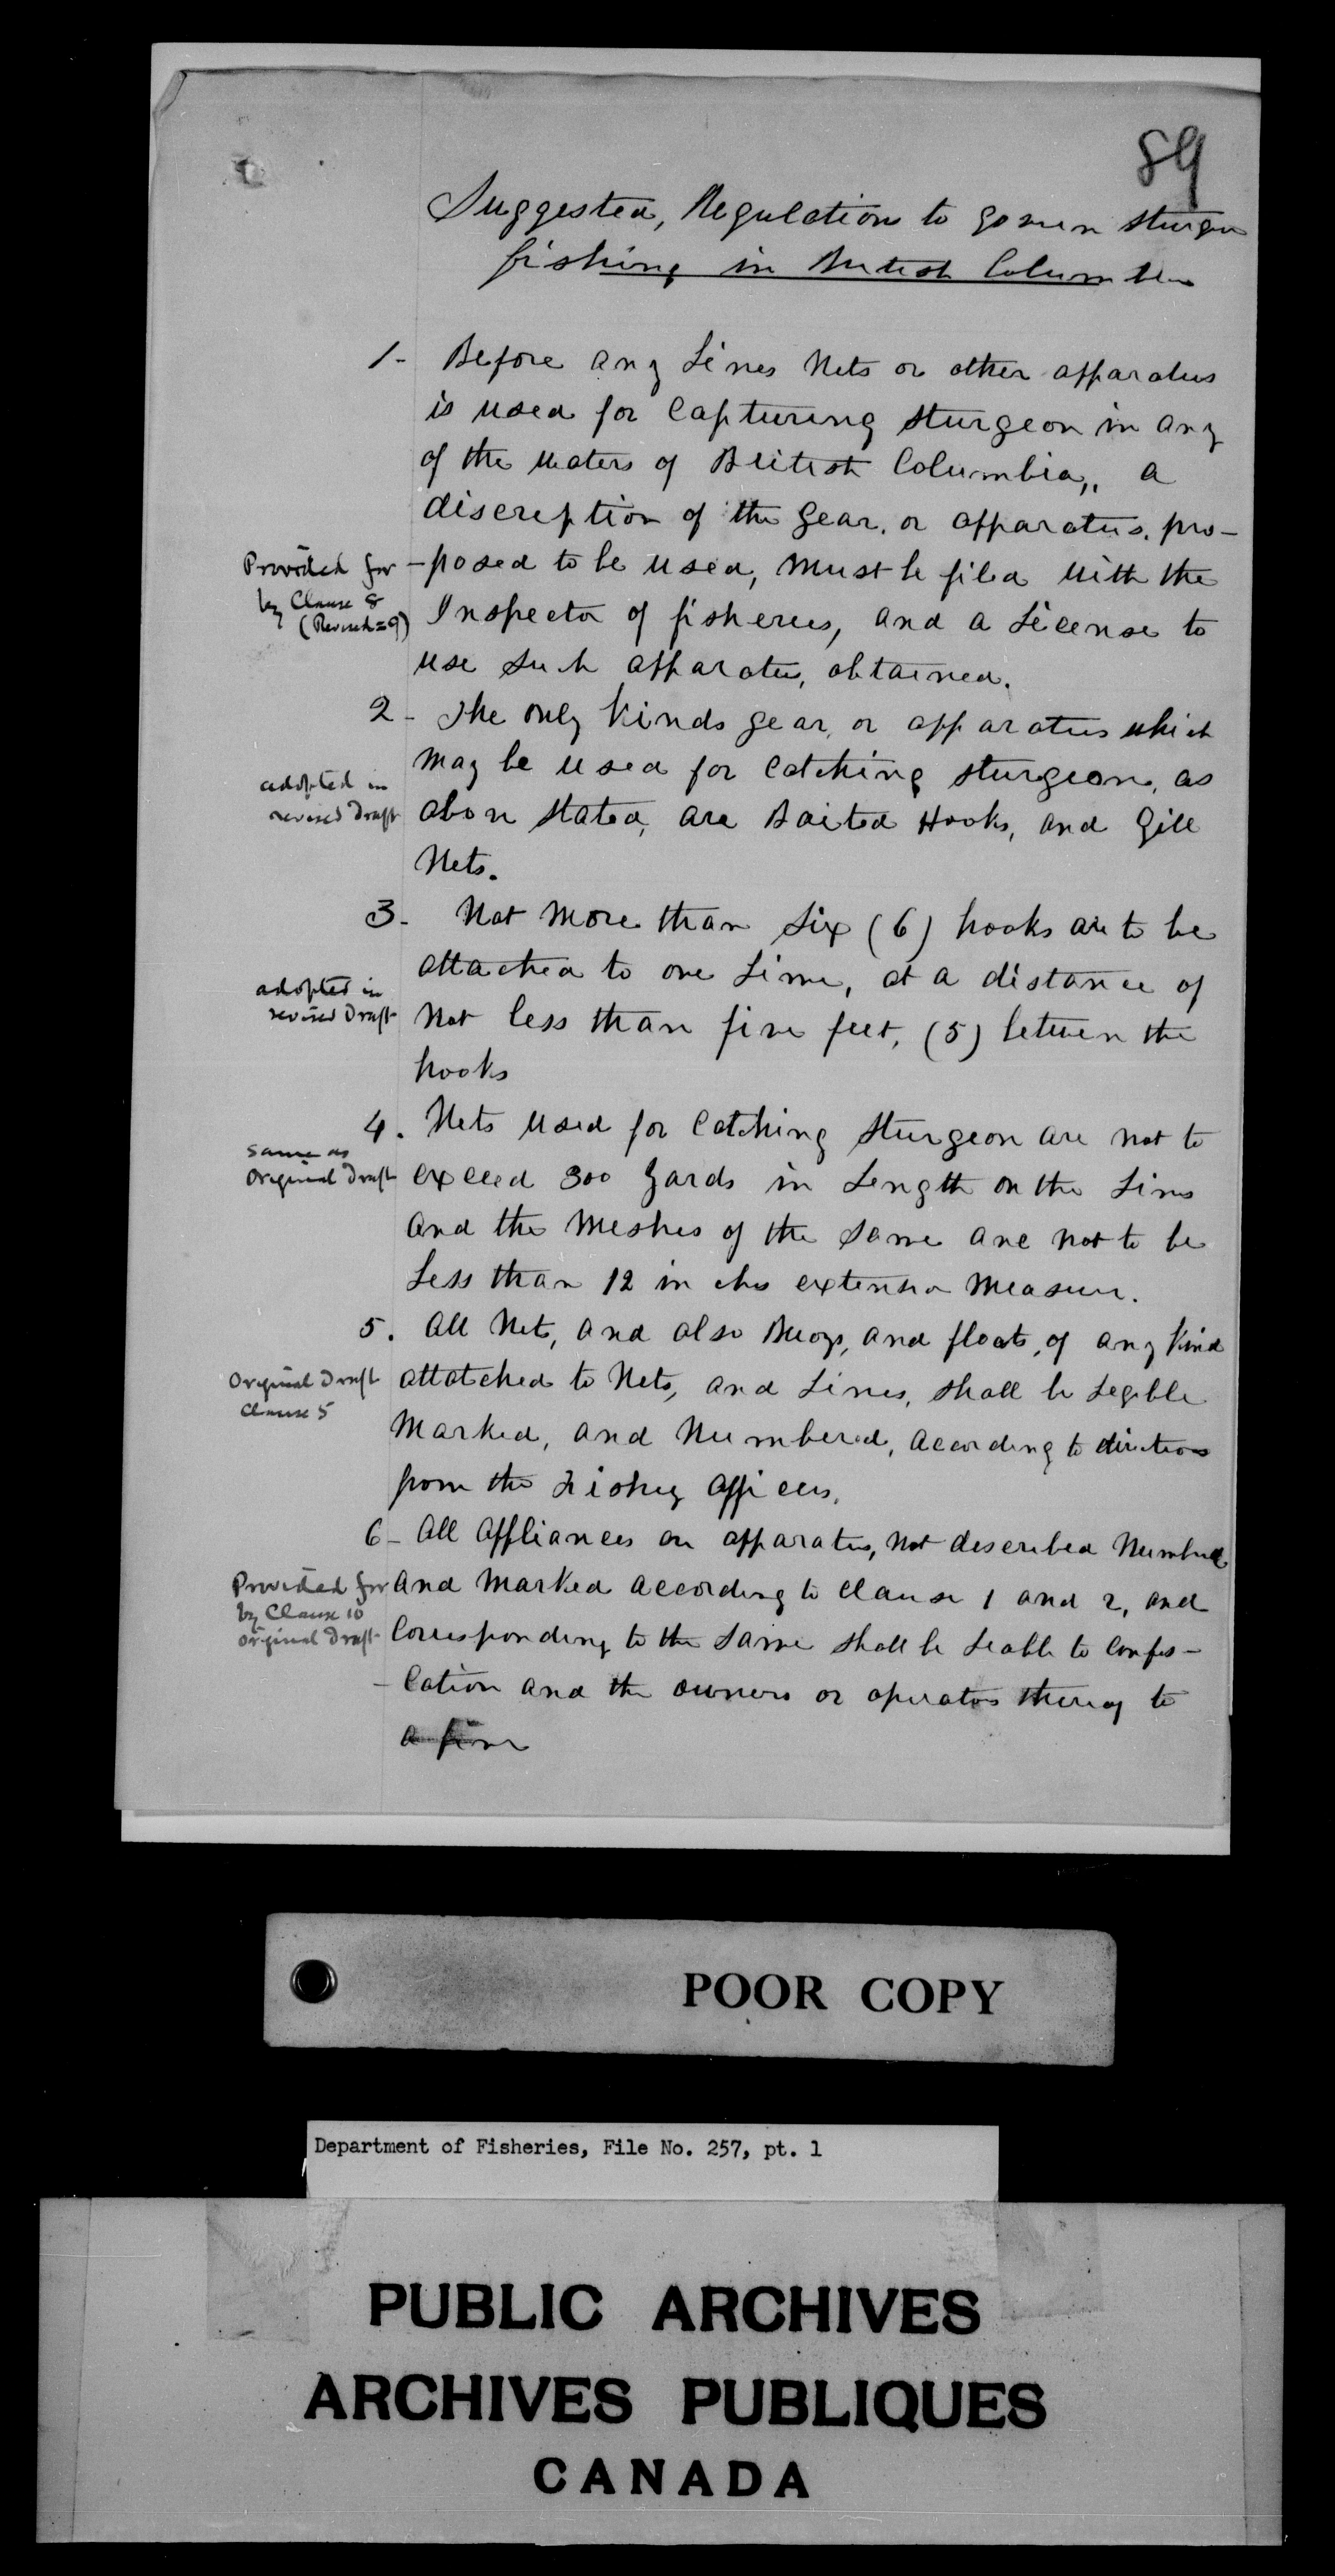 89
Suggested, Regulations to govern sturgeon
fishing in British Columbia
1- Before any Lines Nets or other apparatus
is used for Capturing sturgeon in any
of the waters of British Columbia,, a
discreption of the gear, or apparatus, pro-
Provided for
by Clause 8
(Revised=9)
-posed to be used, must be filed with the
Inspector of fisheries, and a License to
use such apparatus, obtained.
2- The only kinds gear, or apparatus which
may be used for Catching sturgeon, as
adopted in
revised Draft
above stated, are Baited Hooks, and Gill
Nets.
3- Not more than six (6) hooks are to be
attached to one Line, at a distance of
adopted in
revised Draft
Not less than five feet, (5) between the
hooks
4. Nets used for Catching sturgeon are not to
same as
Original Draft
exceed 300 yards in Length on the Lines
and the meshes of the same are not to be
Less than 12 inches extension measure.
5. All Nets, and also Buoys, and floats, of any kind
Original Draft
Clause 5
attatched to Nets, and Lines, shall be Legible
marked, and Numbered, according to directions
from the Fishery officers.
6- All Appliances or apparatus, not described Numbered
Provided for
by Clause 10
original Draft
and marked according to clause 1 and 2, and
Corresponding to the same shall be Leable to Confis-
-cation and the owners or operators thereof to
a fine
POOR COPY
Department of Fisheries, File No. 257, pt. 1
PUBLIC ARCHIVES
ARCHIVES PUBLIQUES
CANADA